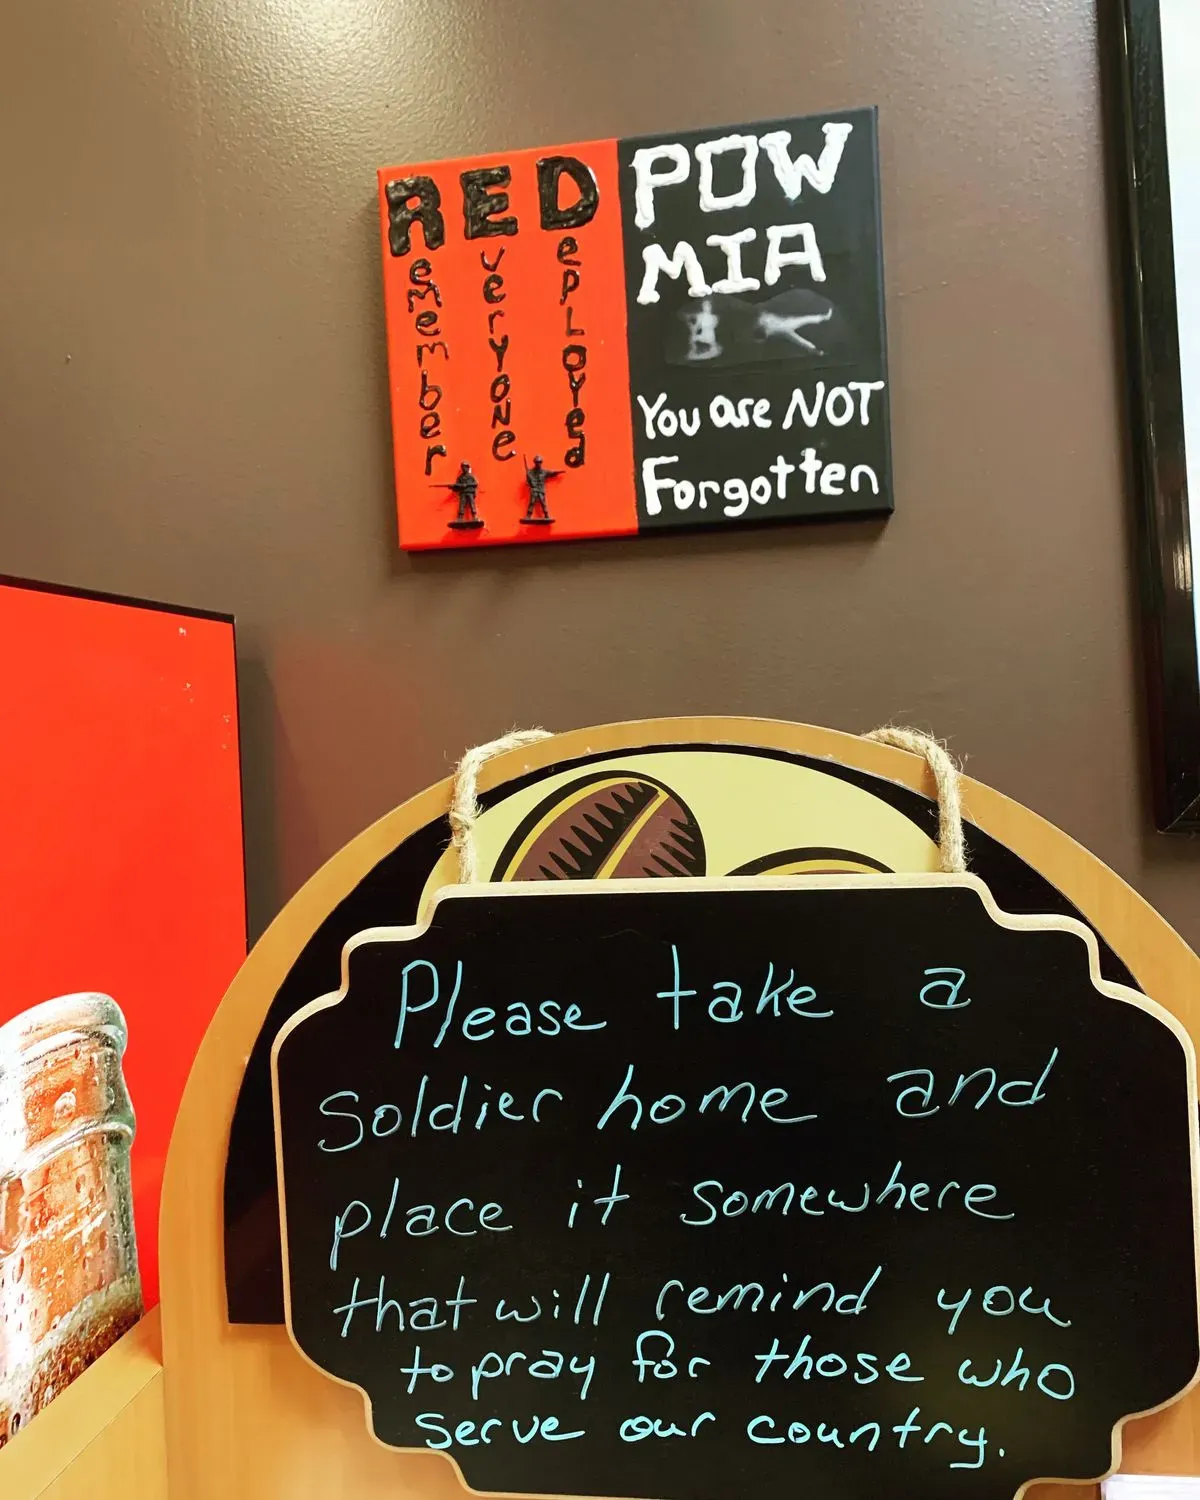 RED
Remember
Everyone
Deployed
POW
MIA
You are NOT
Forgotten
Please take a
Soldier home and
place it somewhere
that will remind you
to pray for those who
serve our country.